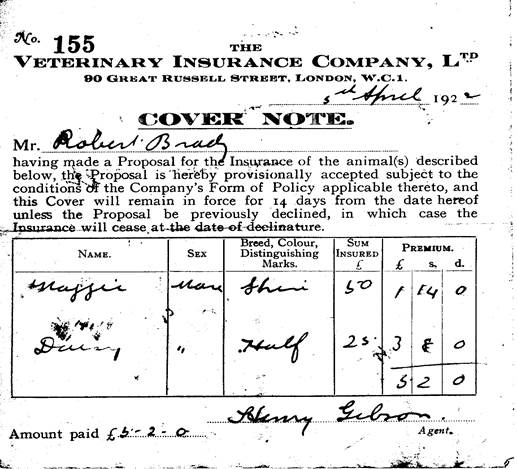 No. 155
THE
VETERINARY INSURANCE COMPANY, LTD
90 GREAT RUSSELL STREET, LONDON, W.C.1.
5th April 1922
COVER NOTE.
Mr. Robert Brady
having made a Proposal for the Insurance of the animal(s) described
below, the Proposal is hereby provisionally accepted subject to the
conditions of the Company's Form of Policy applicable thereto, and
this Cover will remain in force for 14 days from the date hereof
unless the Proposal be previously declined, in which case the
Insurance will cease at the date of declinature.
NAME. SEX Breed, Colour, Distinguishing Marks. SUM INSURED £ PREMIUM. £ s. d.
Maggie Mare Shire 50 1 14 0
Daisy " Half 25 3 8 0
5 2 0
Henry Gibson
Agent.
Amount paid £5-2-0